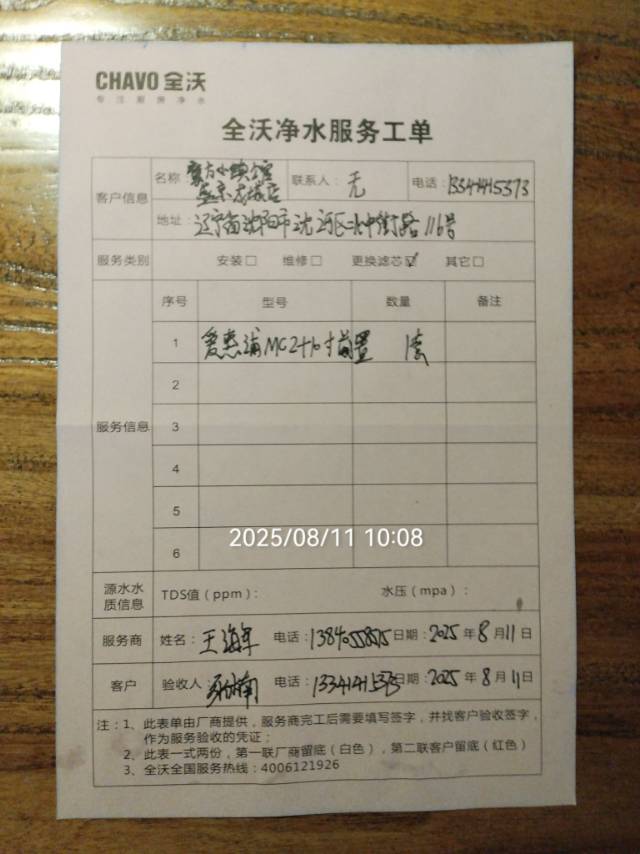 CHAVO 全沃
专注厨房净水
全沃净水服务工单
客户信息
名称
联系人：无
电话：13341415373
盛京龙城店
地址：辽宁省沈阳市沈河区北中街路116号
服务类别 安装□ 维修□ 更换滤芯☑ 其它□
服务信息
序号 型号 数量 备注
1 爱惠浦MC2+10寸前置 1套
2
3
4
5
6
2025/08/11 10:08
源水水质信息 TDS值（ppm）： 水压（mpa）：
服务商 姓名：王海军 电话：13840558515 日期：2025年8月11日
客户 验收人： 电话：13341415373 日期：2025年8月11日
注：1、此表单由厂商提供，服务商完工后需要填写签字，并找客户验收签字，
作为服务验收的凭证；
2、此表一式两份，第一联厂商留底（白色），第二联客户留底（红色）
3、全沃全国服务热线：4006121926